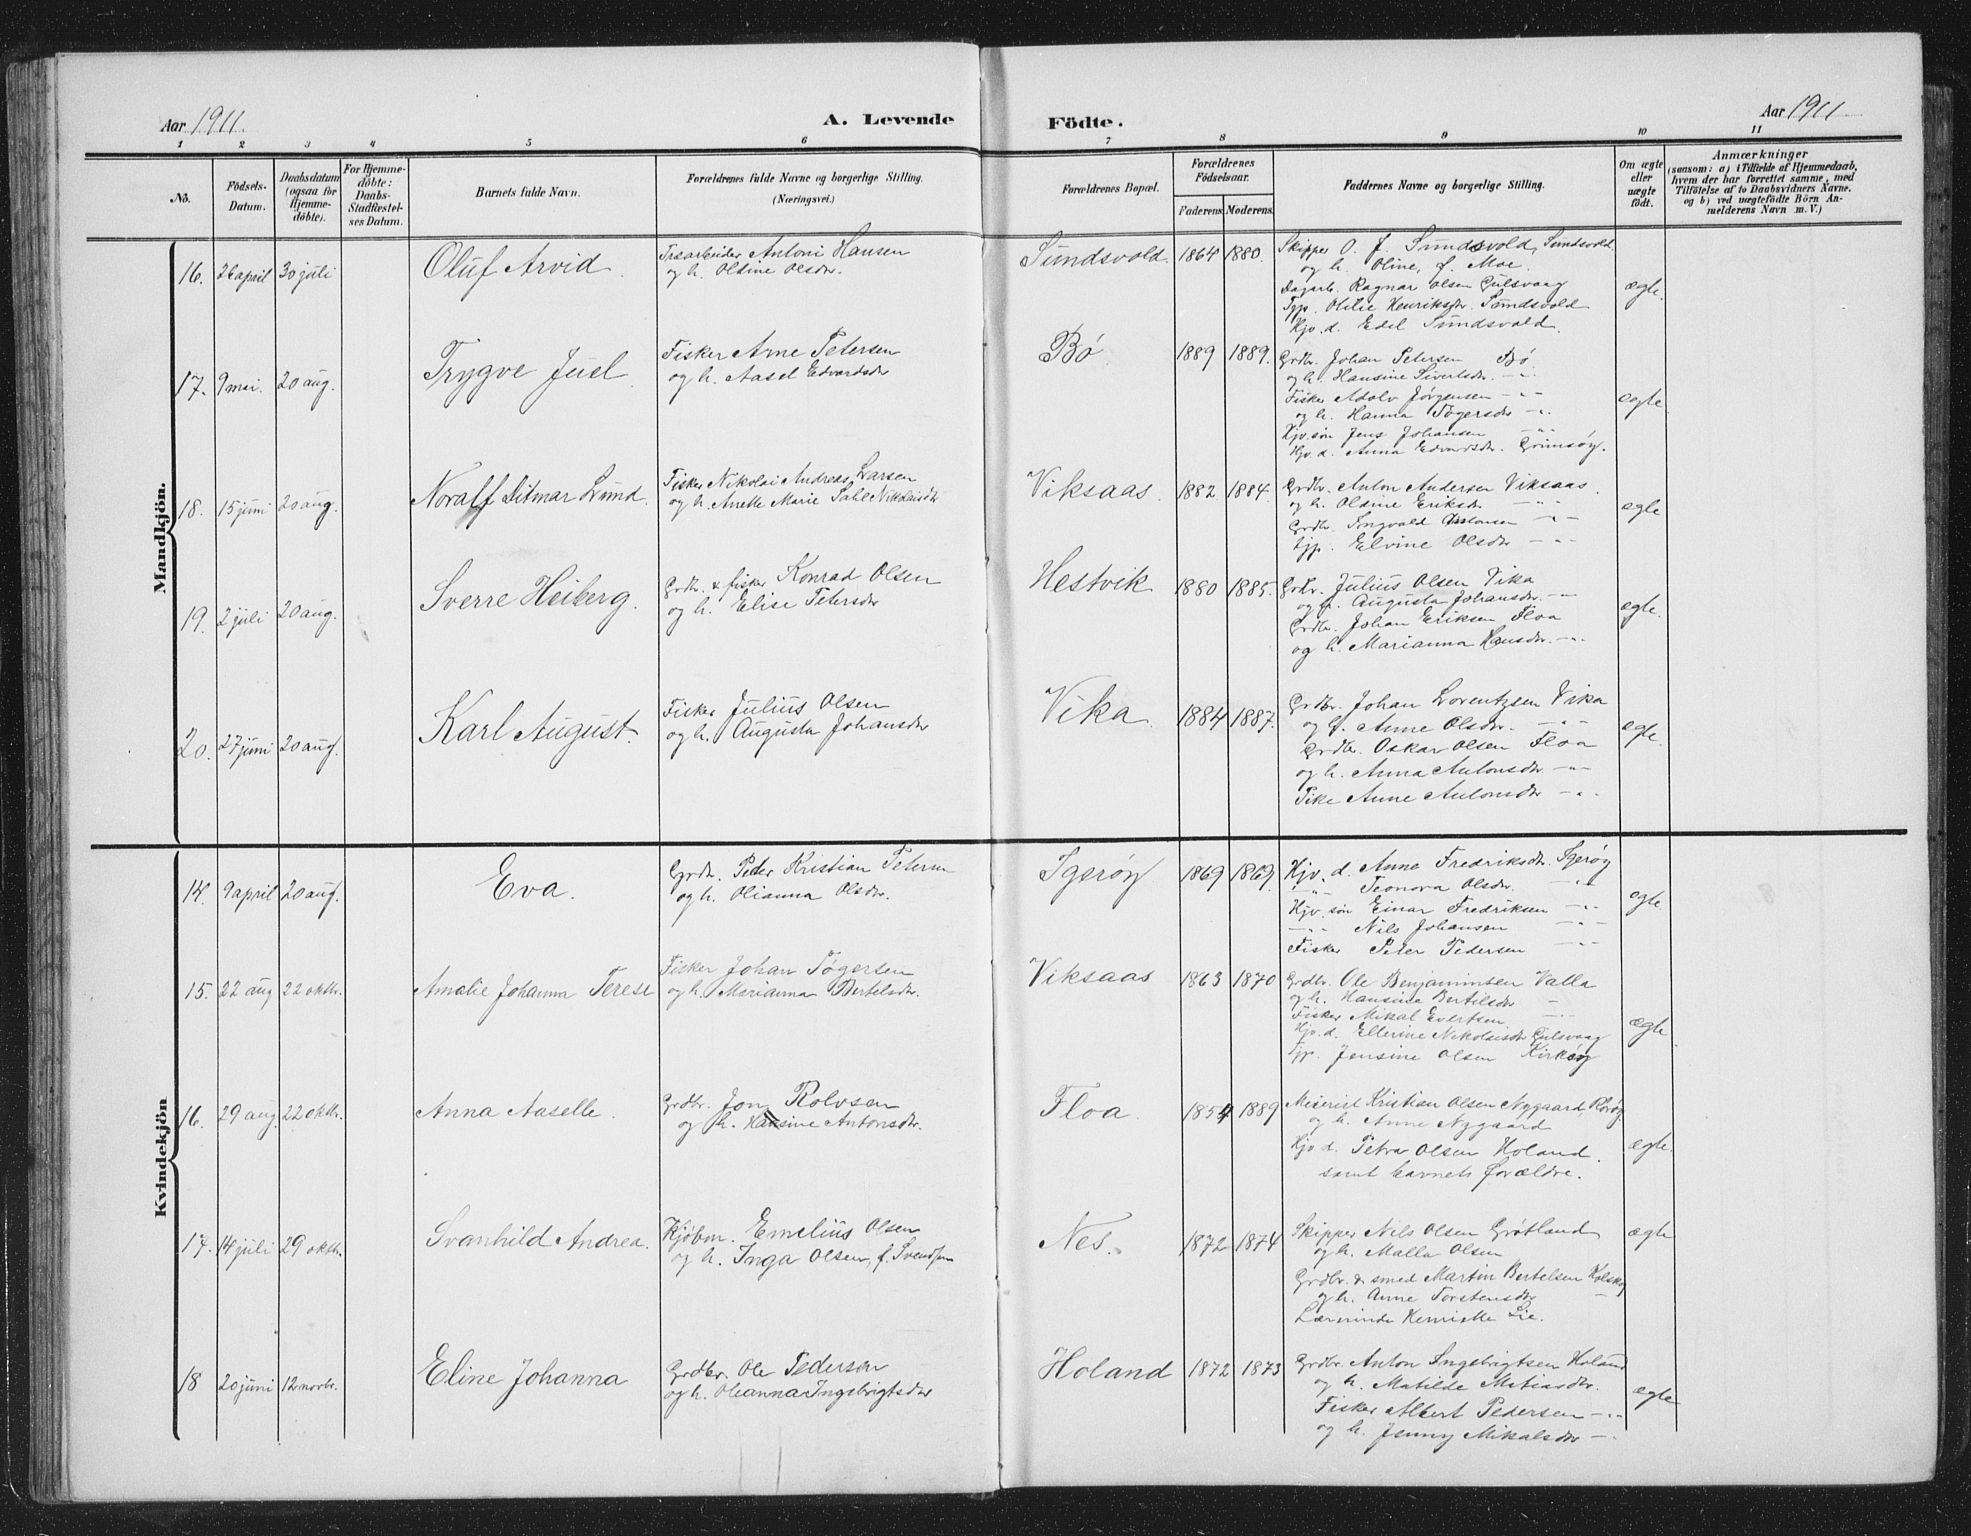 Aar 1911. A. Levende Födte. Aar 1911
1 2 3 4 5 6 7 8 9 10 11
No.
Födsels-Datum.
Daabsdatum (ogsaa for Hjemmedöbte).
For Hjemmedöbte: Daabs-Stadfæstelses Datum.
Barnets fulde Navn.
Forældrenes fulde Navne og borgerlige Stilling. (Næringsvei.)
Forældrenes Bopæl.
Forældrenes Födselsaar.
Faderens Moderens
Faddernes Navne og borgerlige Stilling.
Om ægte eller uægte födt.
Anmærkninger
(sansom: a) i Tilfælde af Hjemmedaab,
hvem der har forrettet samme, med
Tilföielse af to Daabsvidners Navne.
og b) ved uægtefödte Börn An-
melderens Navn m. V.)
Mandkjön.
16. 26 april 30 juli Oluf Arvid. Antoni Hansen
og h. Oldine Olsdtr. Sundsvold 1864 1880.
Skipper O. J. Sundsvold, Sundsvold
og h. Oline, f. Moe.
Dagarb. Ragnar Olsen Gulsvaag
Tjp. Otilie Henriksdtr. Sundsvold
Hjv. d. Edel Sundsvold.
ægte.
17. 9 mai. 20 aug. Trygve Juel. Fisker Arne Petersen
og h. Aasel Edvardsdtr Bø. 1889 1889.
Grdbr. Johan Petersen Bø
og h. Hansine Sivertsdtr. -"-
Fisker Adolv Jørgensen -"-
og h. Hanna Tøgersdtr -"-
Hjv. søn Jens Johansen -"-
Hjv. d. Anna Edvardsdtr. Grimsøy.
egte.
18. 15 juni 20 aug. Noralf Ditmar Lund. Fisker Nikolai Andreas Larsen
og h. Anette Marie Nikolaisdtr Viksaas. 1882 1884.
Grdbr. Anton Andersen Viksaas.
og h. Oldine Eriksdtr -"-
Grdbr. Ingvald -"-
tjp. Elvine Olsdtr -"-
egte
19. 2 juli 20 aug. Sverre Heiberg. Grdbr. & fisker Konrad Olsen
og h. Elise Petersdtr Hestvik 1880 1885.
Grdbr. Julius Olsen Vika
og h. Augusta Johansdtr. -"-
Grdbr. Johan Eriksen Floa
og h. Marianna Hansdtr. -"-
egte.
20. 27 juni 20 aug. Karl August. Fisker Julius Olsen
og h. Augusta Johansdtr Vika. 1884 1887.
Grdbr. Johan Lorentzsen Vika
og h. Anne Olsdtr. -"-
Grdbr. Oskar Olsen Floa
og h. Anna Antonsdtr -"-
Pike Anne Antonsdtr -"-
egte.
Kvindekjön
14. 9 april 20 aug. Eva. Grdbr. Peder Kristian Petersen
og h. Olianna Olsdtr. Igerøy 1869 1869.
Hjv. d. Anne Fredriksdtr. Igerøy
-"- Leonora Olsdtr. -"-
Hjv. søn Einar Fredriksen -"-
-"- Nils Johansen -"-
Fisker Peter Pedersen -"-
egte.
15. 22 aug 22 oktbr. Amalie Johanna Terese Fisker Johan Tøgersen
og h. Marianna Bertelsdtr. Viksaas 1863 1870
Grdbr. Ole Benjaminsen Valla
og h. Hansine Bertelsdtr -
Fisker Mikal Evertsen -"-
Hjv. d. Ellerine Nikolaisdtr Gulsvaag
tjp. Jensine Olsen Kirkøy
ægte
16. 29 aug. 22 oktbr. Anna Aaselle. Grdbr. Jon Rolvsen
og h. Hansine Antonsdtr. Floa. 1854 1889
Meierist Kristian Olsen Nygaard,
og h. Anne Nygaard
Hjv d. Petra Olsen Holand.
samt barnets forældre.
egte.
17. 14 juli 29 oktbr. Svanhild Andrea. Kjøbm. Emelius Olsen
og h. Inga Olsen, f. Svendsen Nes. 1872 1874
Skipper Nils Olsen Grøtland
og h. Malla Olsen
Grdbr. & smed Martin Bertelsen
og h. Anne Torstensdtr -
Lærerinde Henriette Lie.
ægte
18 20 juni 12 novbr. Eline Johanna Grdbr. Ole Pedersen
og h. Oleanna Ingebrigtsdtr Holand 1872 1873
Grdbr. Anton Ingebrigtsen Holand
og h. Matilde Matiasdtr.
Fisker Albert Pedersen -"-
og h. Jenny Mikalsdtr -"-
ægte